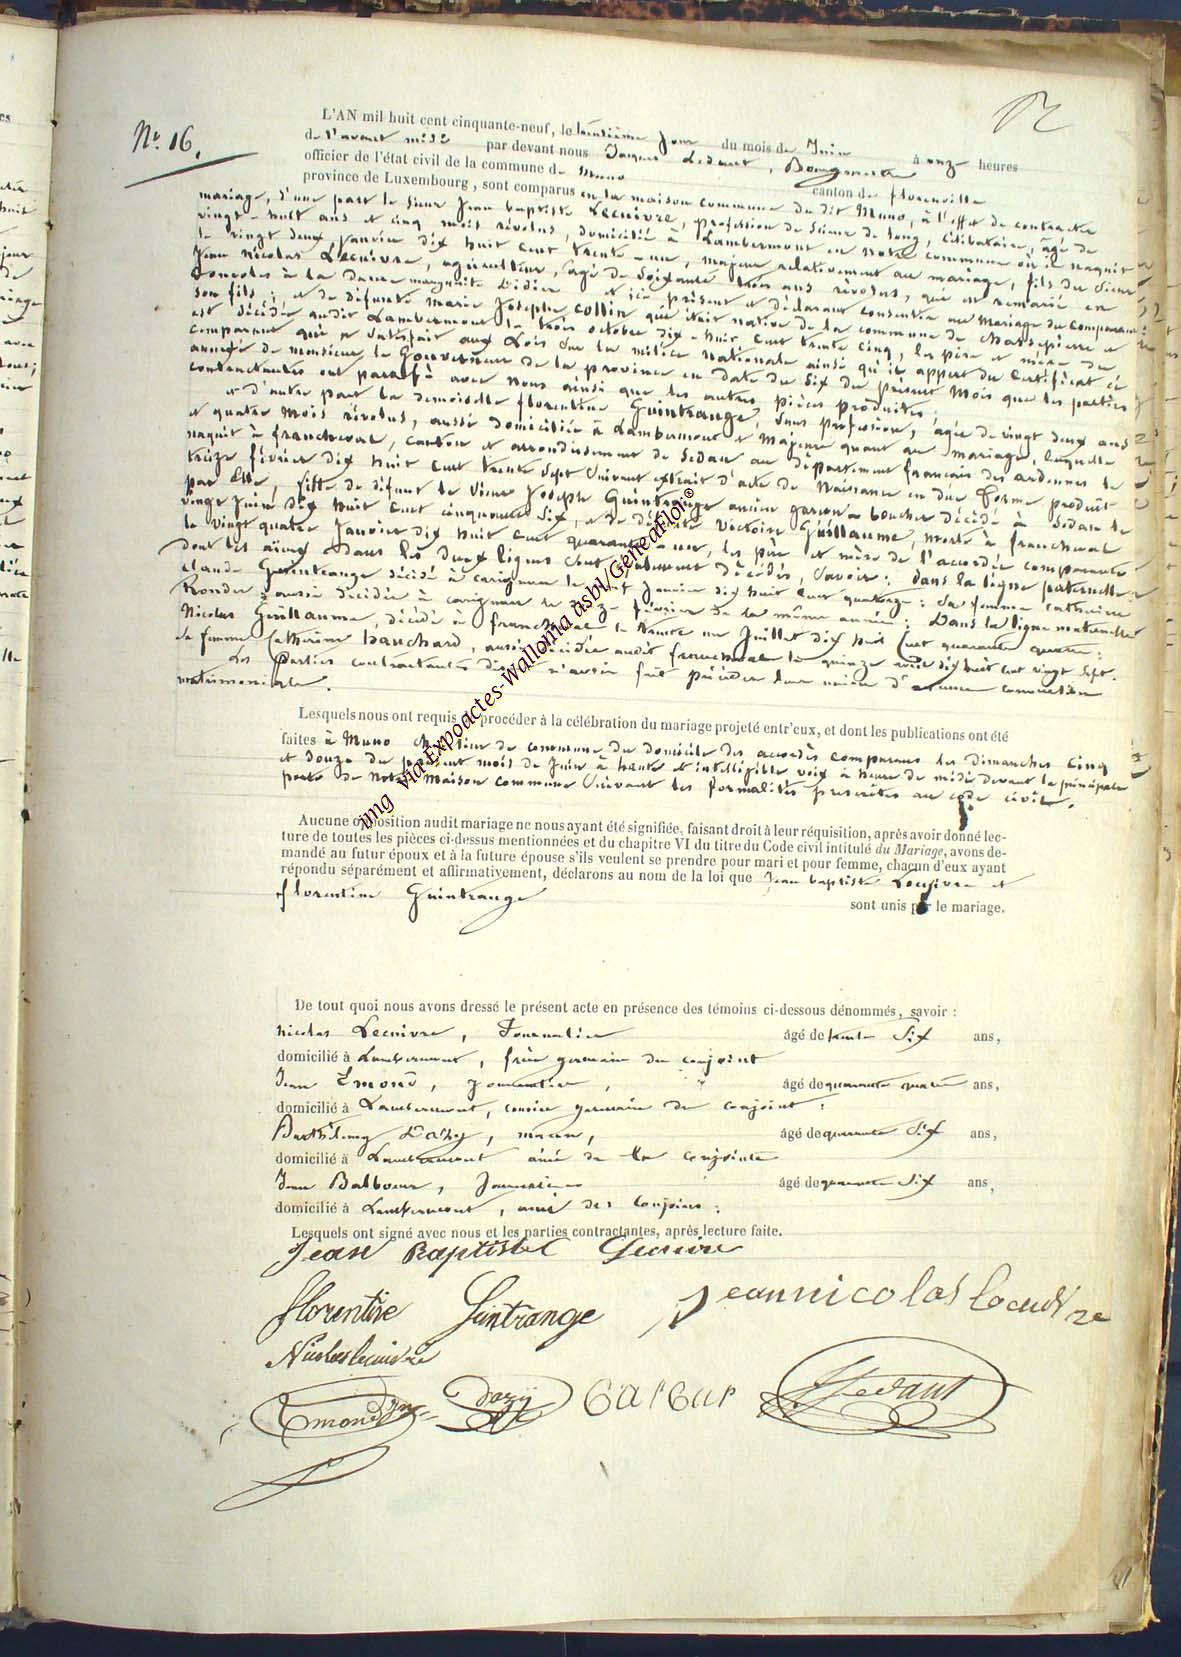 N° 16.
L'AN mil huit cent cinquante-neuf, le jour du mois de Juin à onze heures
de l'avant midi par devant nous Jacques Ledant, Bourgmestre
officier de l'état civil de la commune de Muno canton de florenville
province de Luxembourg, sont comparus en la maison commune du dit Muno, à l'effet de contracter
mariage, d'une part le sieur Jean baptiste Lecuivre, profession de Scieur de long, célibataire, âgé de
vingt-huit ans et cinq mois révolus, domicilié à Lambermont en notre commune où il naquit
le vingt deux janvier dix huit cent trente-un, majeur relativement au mariage, fils du Sieur
Jean Nicolas Lecuivre, agriculteur, âgé de Soixante trois ans révolus, qui est remarié en
à la Dame marguerite Didier et ici présent et déclarant consentir au Mariage du comparant
son fils; et de défunte Marie Josephe Collin qui était native de la commune de Chassepierre et
est décédée audit Lambermont le trois octobre dix-huit cent trente cinq, les père et mère du
comparant qui a Satisfait aux Lois sur la milice nationale ainsi qu'il appert du Certificat ci
annexé de monsieur le Gouverneur de la province en date du Six du présent Mois que les parties
contractantes ont paraphé avec Nous ainsi que les autres pièces produites;
et d'autre part la demoiselle florentine Guintrange, Sans profession, âgée de vingt deux ans
et quatre Mois révolus, aussi domiciliée à Lambermont et Majeure quant au mariage, laquelle
naquit à francheval, canton et arrondissement de Sedan au département francais des ardennes le
treize février dix huit cent trente Sept Suivant extrait d'acte de Naissance en due forme produit
par Elle, fille de défunt le Sieur Joseph Guintrange ancien garçon boucher décédé à Sedan le
vingt Juin dix huit cent cinquante Six, et de défunte Victoire Guillaume, morte à francheval
le vingt quatre Janvier dix huit cent quarante-un, les père et mère de l'accordée comparante
dont les aïeux dans les deux lignes Sont également Décédés, Savoir: dans la ligne paternelle:
claude Guintrange décédé à carignan le Janvier dix huit cent quatorze: Sa femme catherine
Rondu, aussi décédée à carignan le février de la même année: Dans la ligne maternelle
Nicolas Guillaume, décédé à francheval le trente un Juillet dix huit cent quarante quatre:
Sa femme Catherine hanchard, aussi décédée audit francheval le quinze août dix huit cent vingt Sept.
Les Parties contractantes n'avoir fait précéder leur union d'aucune convention
matrimoniale.
Lesquels nous ont requis de procéder à la célébration du mariage projeté entr'eux, et dont les publications ont été
faites à Muno chef-lieu de commune du domicile des accordés comparans les dimanches cinq
et douze du présent mois de Juin à haute et intelligible voix à heure de midi devant la principale
porte de Notre Maison commune Suivant les formalités prescrites au code civil.
Aucune opposition audit mariage ne nous ayant été signifiée, faisant droit à leur réquisition, après avoir donné lec-
ture de toutes les pièces ci-dessus mentionnées et du chapitre VI du titre du Code civil intitulé du Mariage, avons de-
mandé au futur époux et à la future épouse s'ils veulent se prendre pour mari et pour femme, chacun d'eux ayant
répondu séparément et affirmativement, déclarons au nom de la loi que Jean baptiste Lecuivre et
florentine Guintrange
sont unis par le mariage.
De tout quoi nous avons dressé le présent acte en présence des témoins ci-dessous dénommés, savoir :
Nicolas Lecuivre, Journalier âgé de trente Six ans,
domicilié à Lambermont, frère germain du conjoint
Jean Emond, Journalier, âgé de quarante quatre ans,
domicilié à Lambermont, cousin germain du conjoint:
Barthélemy Dazy, maçon, âgé de quarante Six ans,
domicilié à Lambermont ami de la conjointe
Jean Balbeur, Journalier âgé de quarante Six ans,
domicilié à Lambermont, ami des conjoins:
Lesquels ont signé avec nous et les parties contractantes, après lecture faite.
Jean Baptiste Lecuivre
florentine Guintrange jeannicolas locuivre
Nicolas lecuivre
Emond Dazy balbeur J Ledant
img via Expoactes-Wallonia asbl/GeneaFlor®